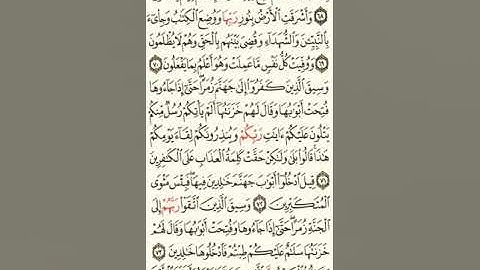 ﴿٦٨﴾ وَأَشْرَقَتِ الْأَرْضُ بِنُورِ رَبِّهَا وَوُضِعَ الْكِتَٰبُ وَجِاْىٓءَ
بِالنَّبِيِّـۧنَ وَالشُّهَدَآءِ وَقُضِىَ بَيْنَهُم بِالْحَقِّ وَهُمْ لَا يُظْلَمُونَ
﴿٦٩﴾ وَوُفِّيَتْ كُلُّ نَفْسٍ مَّا عَمِلَتْ وَهُوَ أَعْلَمُ بِمَا يَفْعَلُونَ ﴿٧٠﴾
وَسِيقَ الَّذِينَ كَفَرُوٓا۟ إِلَىٰ جَهَنَّمَ زُمَرًا حَتَّىٰٓ إِذَا جَآءُوهَا
فُتِحَتْ أَبْوَٰبُهَا وَقَالَ لَهُمْ خَزَنَتُهَآ أَلَمْ يَأْتِكُمْ رُسُلٌ مِّنكُمْ
يَتْلُونَ عَلَيْكُمْ ءَايَٰتِ رَبِّكُمْ وَيُنذِرُونَكُمْ لِقَآءَ يَوْمِكُمْ
هَٰذَا قَالُوا۟ بَلَىٰ وَلَٰكِنْ حَقَّتْ كَلِمَةُ الْعَذَابِ عَلَى الْكَٰفِرِينَ
﴿٧١﴾ قِيلَ ادْخُلُوٓا۟ أَبْوَٰبَ جَهَنَّمَ خَٰلِدِينَ فِيهَا فَبِئْسَ مَثْوَى
الْمُتَكَبِّرِينَ ﴿٧٢﴾ وَسِيقَ الَّذِينَ اتَّقَوْا۟ رَبَّهُمْ إِلَى
الْجَنَّةِ زُمَرًا حَتَّىٰٓ إِذَا جَآءُوهَا وَفُتِحَتْ أَبْوَٰبُهَا وَقَالَ لَهُمْ
خَزَنَتُهَا سَلَٰمٌ عَلَيْكُمْ طِبْتُمْ فَادْخُلُوهَا خَٰلِدِينَ ﴿٧٣﴾